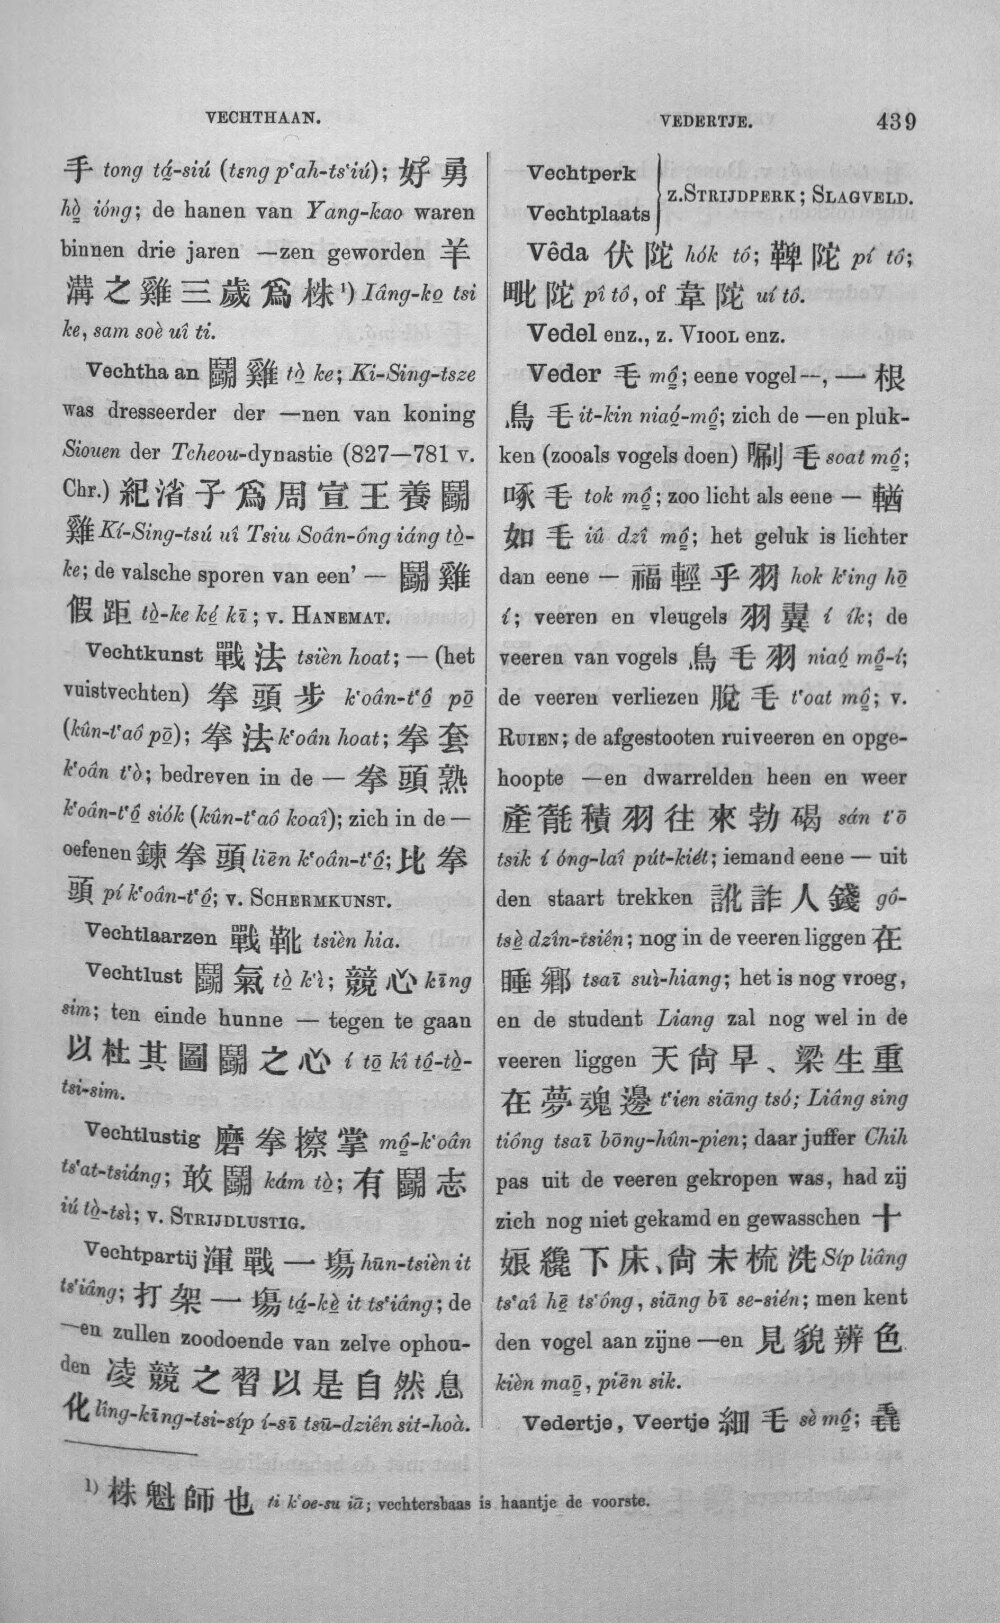 VECHTHAAN.
VEDERTJE.
439
手 tong tá̤-siú (tɛng p‘ah-ts‘iú); 好 勇
hò̤ ióng; de hanen van Yang-kao waren
binnen drie jaren —zen geworden 羊
溝 之 雞 三 歲 爲 株 ¹) Iâng-ko̤ tsi
ke, sam soè uî ti.
Vechthaan 鬭 雞 tò̤ ke; Ki-Sing-tsze
was dresseerder der —nen van koning
Siouen der Tcheou-dynastie (827—781 v.
Chr.) 紀 渻 子 爲 周 宣 王 養 鬭
雞 Kí-Sing-tsú uî Tsiu Soân-ông iáng tò̤-
ke; de valsche sporen van een’ — 鬭 雞
假 距 tò̤-ke ké̤ kī; v. HANEMAT.
Vechtkunst 戰 法 tsièn hoat; — (het
vuistvechten) 拳 頭 步 k‘oân-t‘ô̤ pō̤
(kûn-t‘aô pō̤); 拳 法 k‘oân hoat; 拳 套
k‘oân t‘ò; bedreven in de — 拳 頭 熟
k‘oân-t‘ô̤ siók (kûn-t‘aô koaî); zich in de —
oefenen 鍊 拳 頭 liēn k‘oân-t‘ô̤; 比 拳
頭 pí k‘oân-t‘ô̤; v. SCHERMKUNST.
Vechtlaarzen 戰 靴 tsièn hia.
Vechtlust 鬭 氣 tò̤ k‘ì; 競 心 kīng
sim; ten einde hunne — tegen te gaan
以 杜 其 圖 鬭 之 心 í tō̤ kî tô̤-tò̤-
tsi-sim.
Vechtlustig 磨 拳 擦 掌 mô̤-k‘oân
ts‘at-tsiáng; 敢 鬭 kám tò̤; 有 鬭 志
iú tò̤-tsì; v. STRIJDLUSTIG.
Vechtpartij 渾 戰 一 塲 hūn-tsièn it
ts‘iâng; 打 架 一 塲 tá̤-kè̤ it ts‘iâng; de
—en zullen zoodoende van zelve ophou-
den 凌 競 之 習 以 是 自 然 息
化 lîng-kīng-tsi-síp í-sī tsū-dziên sit-hoà.
¹) 株 魁 師 也 ti k‘oe-su iā; vechtersbaas is haantje de voorste.
Vechtperk
Vechtplaats
z. STRIJDPERK; SLAGVELD.
Vêda 伏 陀 hók tô; 鞞 陀 pí tô;
毗 陀 pî tô, of 韋 陀 uí tô.
Vedel enz., z. VIOOL enz.
Veder 毛 mô̤; eene vogel—, 一 根
鳥 毛 it-kin niaó̤-mô̤; zich de —en pluk-
ken (zooals vogels doen) 唰 毛 soat mô̤;
啄 毛 tok mô̤; zoo licht als eene — 輶
如 毛 iû dzî mô̤; het geluk is lichter
dan eene — 福 輕 乎 羽 hok k‘ing hō
í; veeren en vleugels 羽 翼 í ík; de
veeren van vogels 鳥 毛 羽 niaó̤ mô̤-í;
de veeren verliezen 脫 毛 t‘oat mô̤; v.
RUIEN; de afgestooten ruiveeren en opge-
hoopte —en dwarrelden heen en weer
產 毻 積 羽 往 來 勃 碣 sán t‘ō
tsik í óng-laî pút-kiét; iemand eene — uit
den staart trekken 訛 詐 人 錢 gô-
tsè̤ dzîn-tsiên; nog in de veeren liggen 在
睡 鄉 tsaī suì-hiang; het is nog vroeg,
en de student Liang zal nog wel in de
veeren liggen 天 尙 早、梁 生 重
在 夢 魂 邊 t‘ien siāng tsó; Liâng sing
tióng tsaī bōng-hûn-pien; daar juffer Chih
pas uit de veeren gekropen was, had zij
zich nog niet gekamd en gewasschen 十
娘 纔 下 床、尙 未 梳 洗 Síp liâng
ts‘aî hē̤ ts‘ông, siāng bī se-sién; men kent
den vogel aan zijne —en 見 貌 辨 色
kièn maō̤, piēn sik.
Vedertje, Veertje 細 毛 sè mô̤; 毳